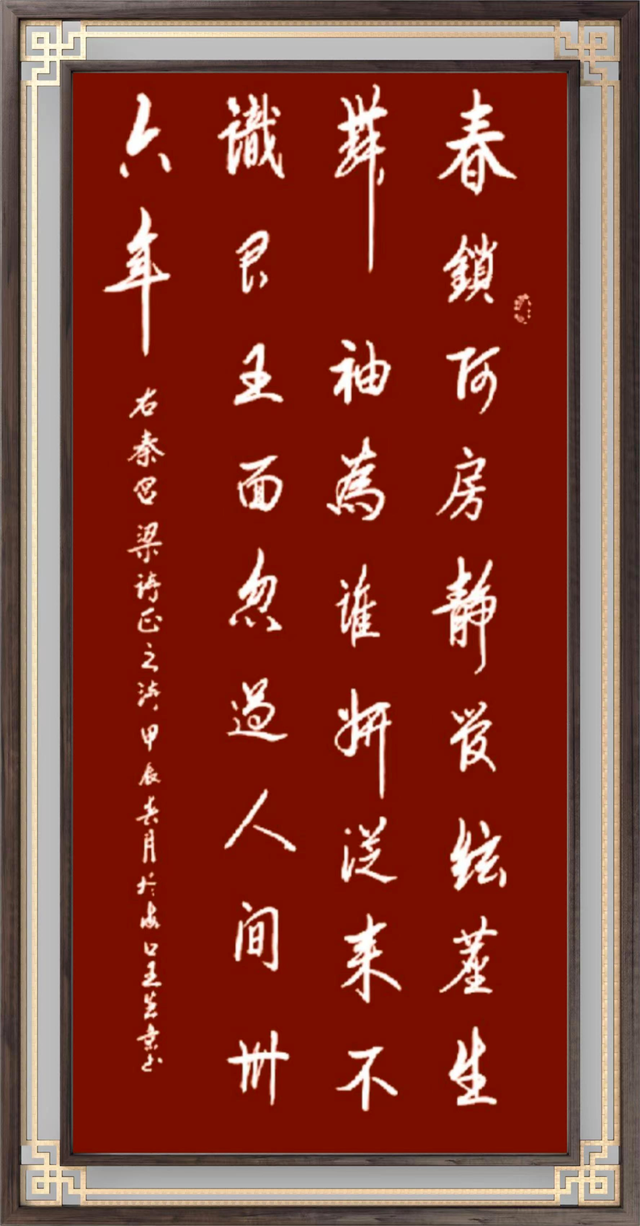 春鎖阿房靜管絃塵生
舞袖為誰妍從來不
識君王面忽過人間卅
六年
右秦宮梁詩正之詩甲辰春月於海口王書